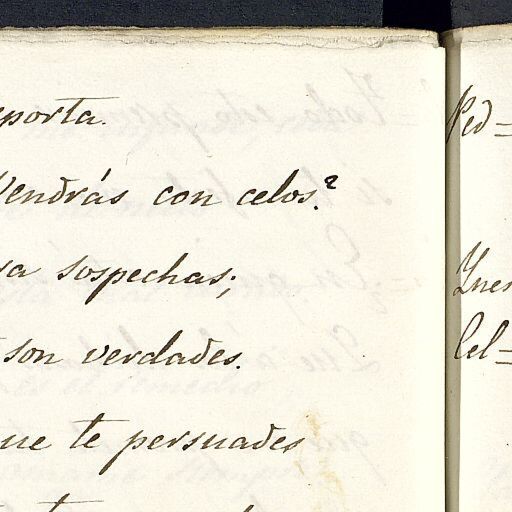 porta.
Vendrás con celos?
va sospechas;
son verdades.
ue te persuades
Ped =
Ynes
Cel =